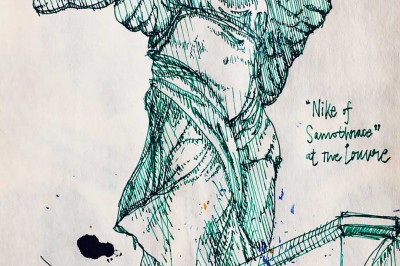 "Nike of
Samothrace"
at The Louvre